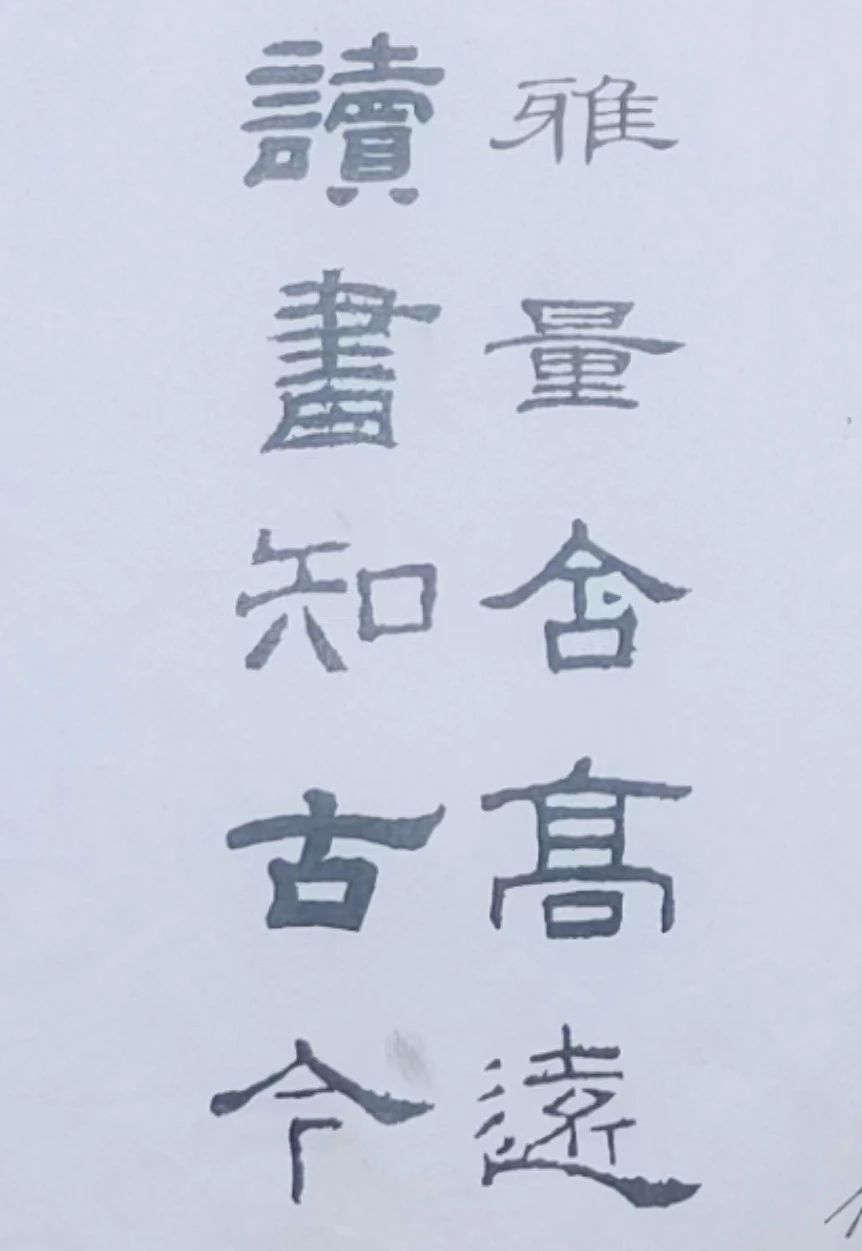 雅量含高遠
讀書知古今